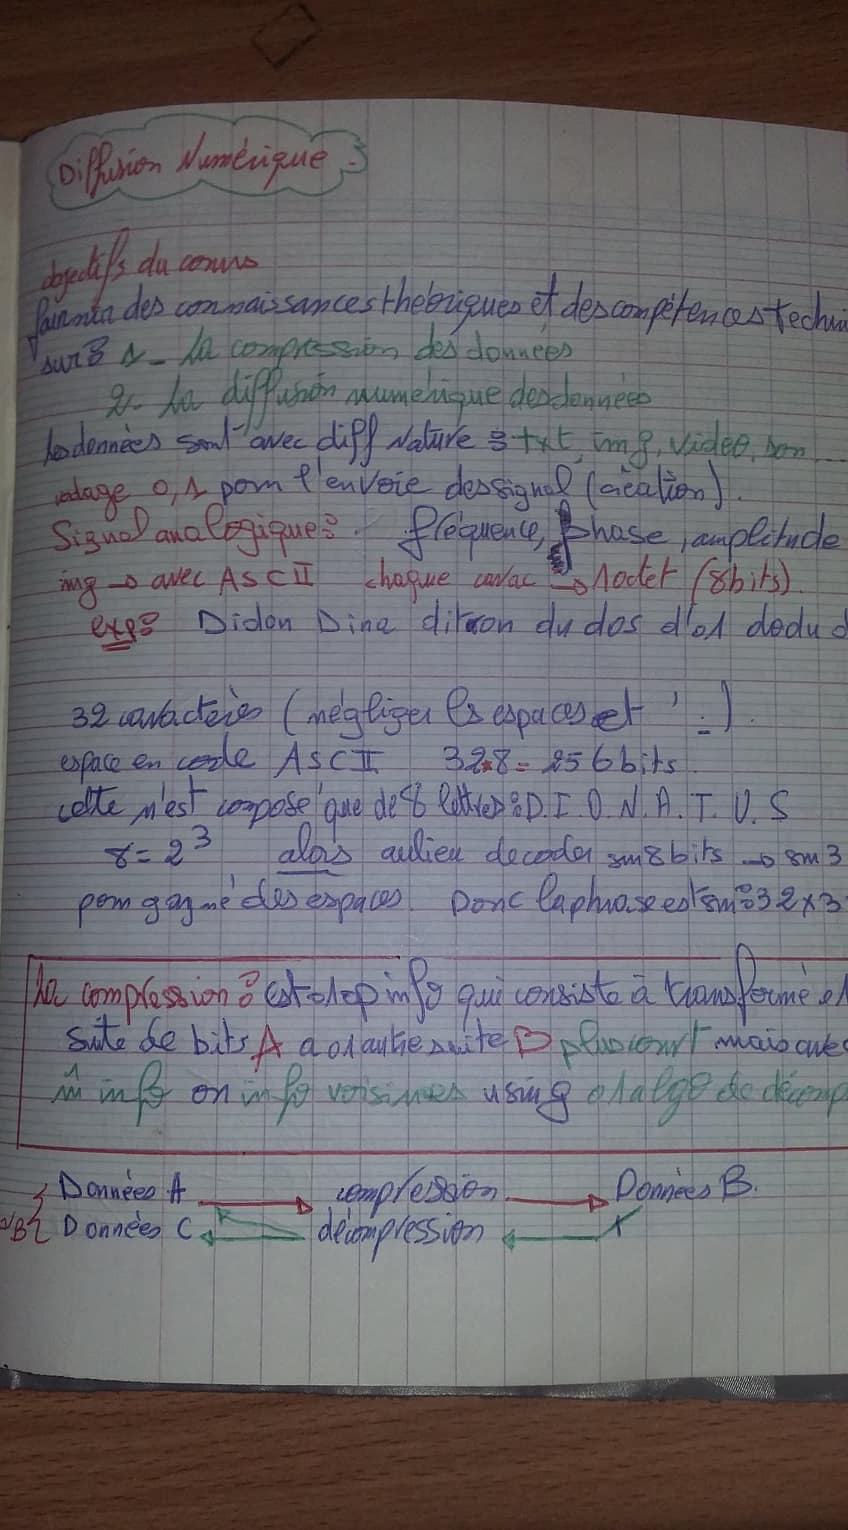 Diffusion Numérique
objectifs du cours
des connaissances théoriques et des compétences techni
sur : 1 - La compression des données
2 - La diffusion numérique des données
les données sont avec diff Nature : txt, img, vidéo, son
codage 0,1 pour l'envoie des signal (création).
Signal analogique : fréquence, phase, amplitude
img → avec ASCII chaque carac → 1 octet (8bits).
exp : Didon Dina dit-on du dos d'01 dodu d
32 caractères (négliger les espaces et ' - ).
espace en code ASCII 32.8 = 256 bits
cette n'est composé que de 8 lettres : D. I. O. N. A. T. U. S
8 = 2³ alors aulieu de coder sur 8 bits → sur 3
pour gagné des espaces. Donc la phrase est sur : 32 x 3
La compression : est 1 op info qui consiste à transformé 01
suite de bits A a 01 autre suite B plus court mais avec
m̂ info ou info voisines using 01 algo de décomp
Données A → compression → Données B.
NB Données C ← décompression ←